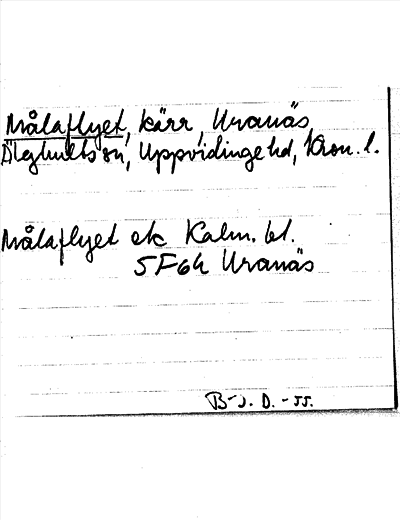 Målaflyet, kärr, Uranäs
Älghults sn, Uppvidinge hd, Kron. l.
Målaflyet ek Kalm. bl.
5F6h Uranäs
B-J. D. -55.